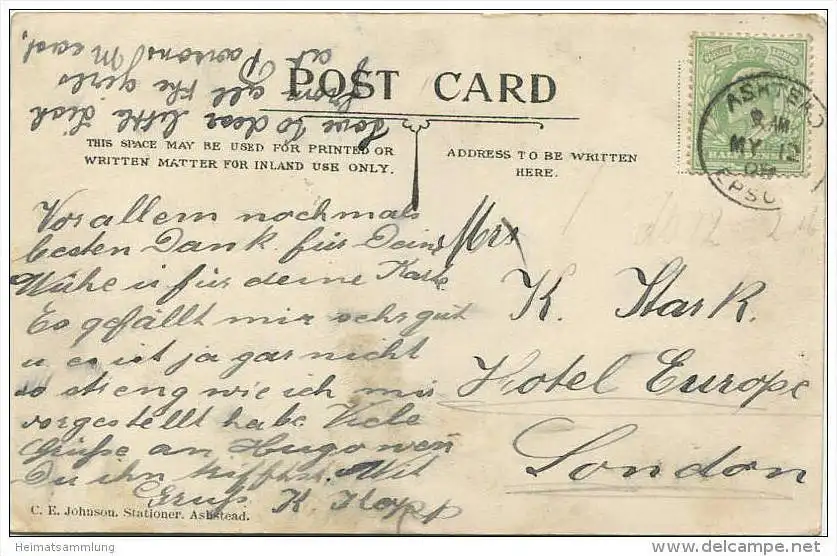 POST CARD
THIS SPACE MAY BE USED FOR PRINTED OR
WRITTEN MATTER FOR INLAND USE ONLY.
ADDRESS TO BE WRITTEN
HERE.
ASHTEAD
MY 12
09
EPSO
Love to dear little Dick
from all the girls
at Parsons Mead,
Vor allem nochmals
besten Dank für Deine
Mühe u für deine Karte
Es gefällt mir sehr gut
u es ist ja gar nicht
so streng wie ich mir
vorgestellt habe. Viele
Grüße an Hugo wen
Du ihn triffst. Mit
Gruß K. Kopp
Mrs
K. Stark.
Hotel Europe
London
C. E. Johnson, Stationer, Ashstead.
Heimatsammlung
www.delcampe.net